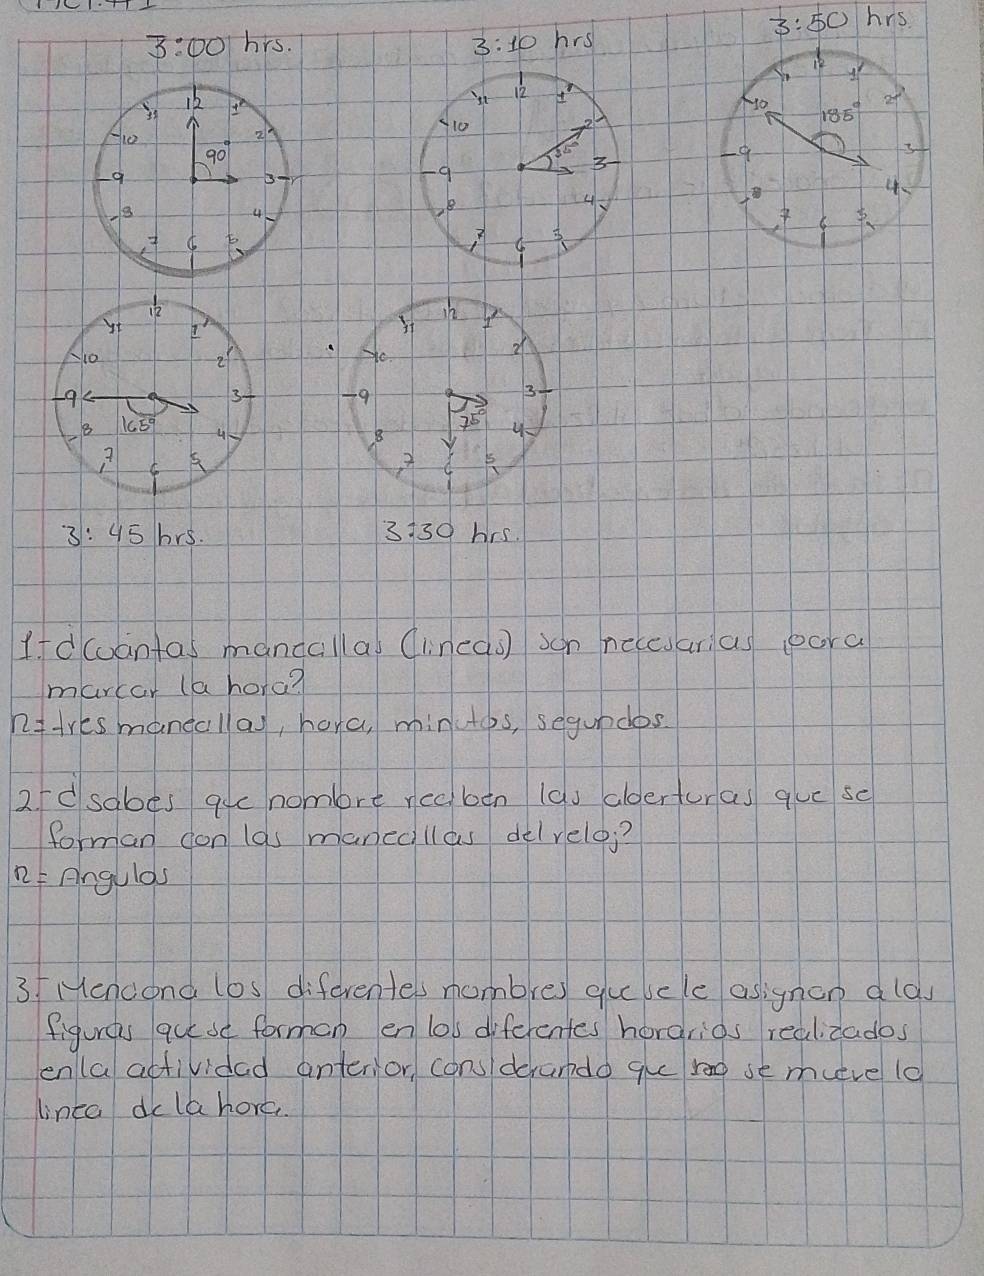 3:00 hrs.
3:10 hrs
3:50 hrs.
12 1 2 3 4 5 6 7 8 9 10 11
90°
12 1 2 3 4 5 6 7 8 9 10 11
35°
12 1 2 3 4 5 6 7 8 9 10 11
185°
12 1 2 3 4 5 6 7 8 9 10 11
165°
12 1 2 3 4 5 6 7 8 9 10 11
75°
3:45 hrs.
3:30 hrs.
1.- ¿Cuantas manecillas (lineas) son necesarias para
marcar la hora?
R= tres manecillas, hora, minutos, segundos.
2.- ¿sabes que nombre reciben las aberturas que se
forman con las manecillas del reloj?
R= Angulos
3.- Menciona los diferentes nombres que se le asignan a las
figuras que se forman en los diferentes horarios realizados
en la actividad anterior, considerando que no se mueve la
linea de la hora.